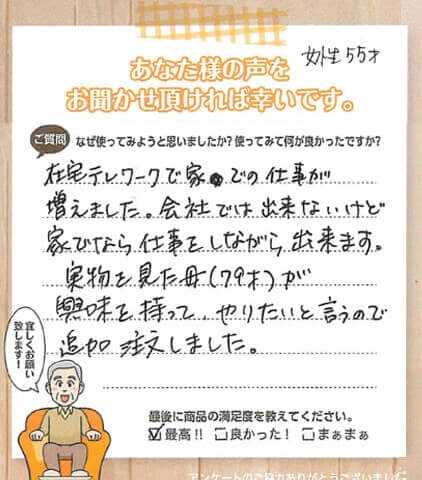 女性55才
あなた様の声を
お聞かせ頂ければ幸いです。
ご質問 なぜ使ってみようと思いましたか？使ってみて何が良かったですか？
在宅テレワークで家での仕事が
増えました。会社では出来ないけど
家でなら仕事をしながら出来ます。
実物を見た母(79才)が
興味を持って、やりたいと言うので
追加注文しました。
宜しくお願い
致します！
最後に商品の満足度を教えてください。
☑最高!! □良かった！ □まぁまぁ
アンケートのご協力ありがとうございました